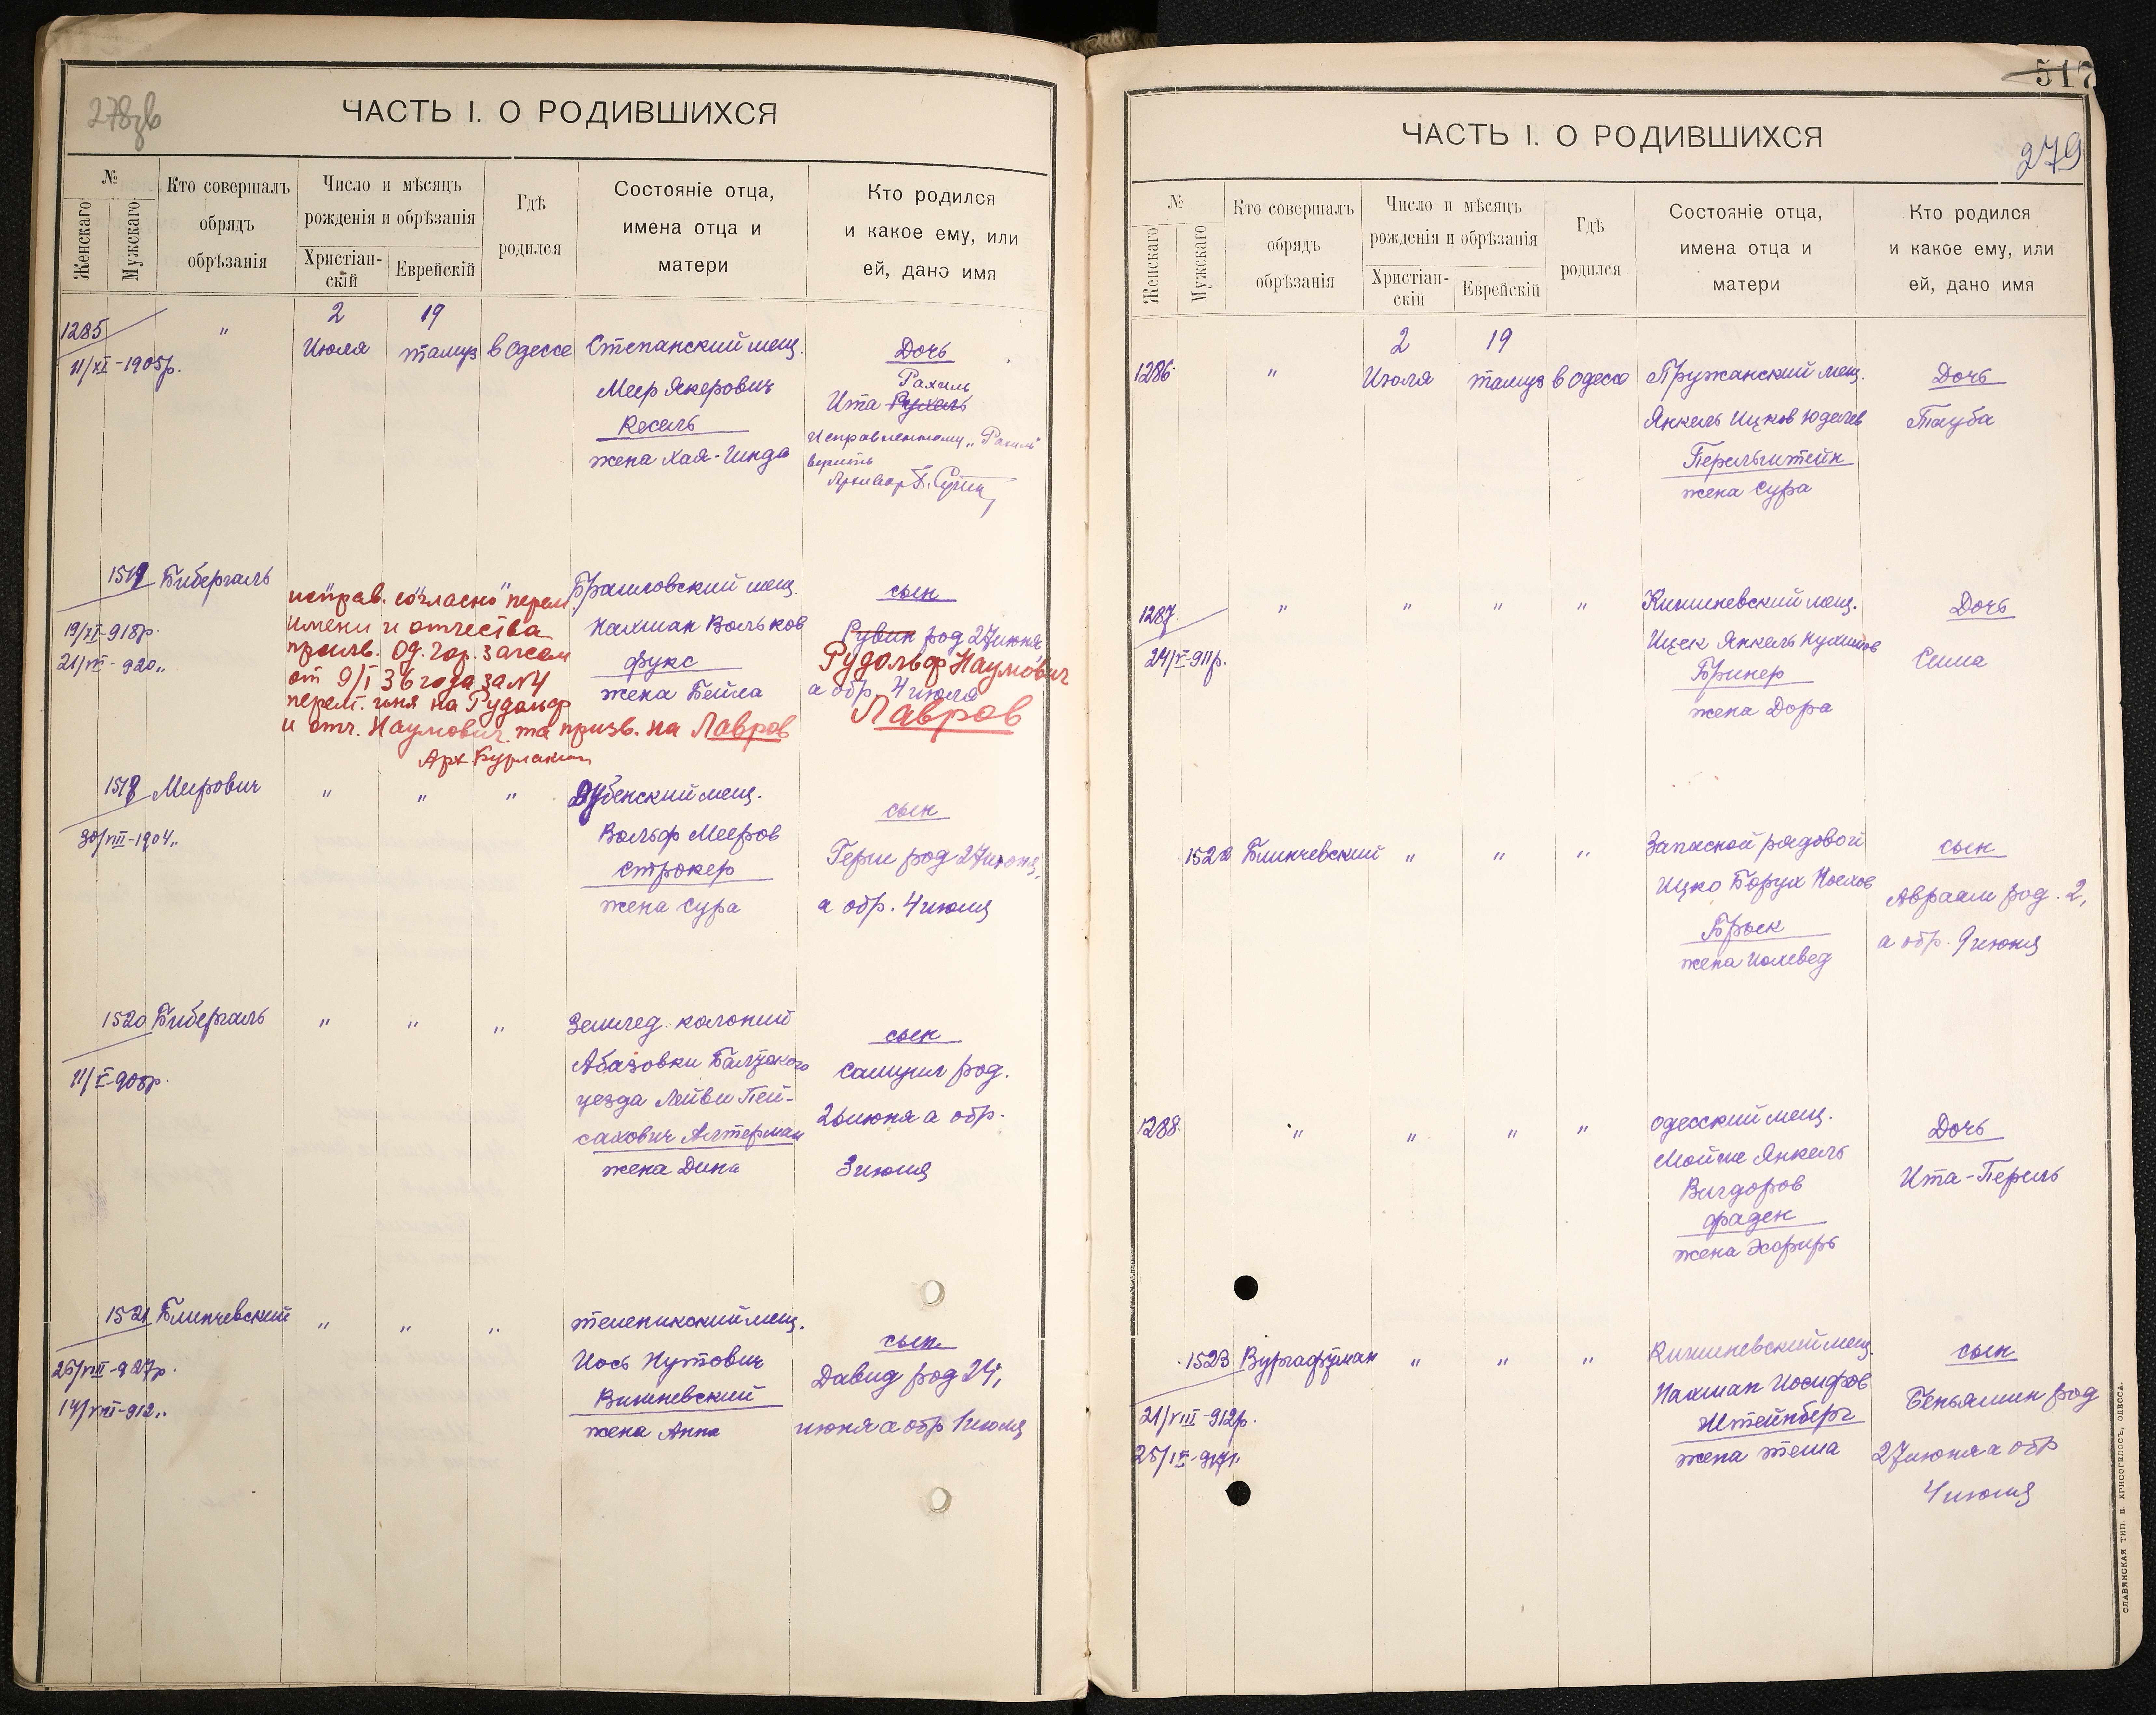 278зв
ЧАСТЬ I. О РОДИВШИХСЯ
№
Женскаго
Мужскаго
Кто совершалъ
обрядъ
обрѣзанія
Число и мѣсяцъ
рожденія и обрѣзанія
Христіан-
скій
Еврейскій
Гдѣ
родился
Состояніе отца,
имена отца и
матери
Кто родился
и какое ему, или
ей, дано имя
1285
11/XI-1905р.
"
2
Июля
19
тамуз
в Одессе
Степанский мещ.
Меер Якерович
Кесель
жена Хая-Гинда
Дочь
Рахиль
Ита Рухель
Исправленному „Рахиль"
верить
Архивар
1519
Бибергаль
19/XI-918р.
21/VII-920..
исправ. согласно перем.
имени и отчества
призв. Од. Гор. Загсом
от 9/I 36 года за №4
перем. имя на Рудольф
и отч. Наумович та призв. на Лавров
Арх.
Браиловский мещ.
Нахман Вольков
Фукс
жена Бейла
сын
Рувин род 27 июня
Рудольф Наумович
а обр. 4 июля
Лавров
1518
Меерович
30/VIII-1904..
" " "
Дубенский мещ.
Вольф Мееров
Строкер
жена Сура
сын
Герш род 27 июня,
а обр. 4 июля
1520
Бибергаль
" " "
Землед. колонии
Абазовки Балтского
уезда Лейви Пей-
сахович Алтерман
жена Дина
сын
Самуил род.
26 июня а обр.
3 июля
1521
Блинчевский
25/VIII-927р.
14/VIII-912..
" " "
мещ.
Иось Нутович
Вишневский
жена Анна
сын
Давид род 24,
июня а обр 1 июля
517
279
ЧАСТЬ I. О РОДИВШИХСЯ
№
Женскаго
Мужскаго
Кто совершалъ
обрядъ
обрѣзанія
Число и мѣсяцъ
рожденія и обрѣзанія
Христіан-
скій
Еврейскій
Гдѣ
родился
Состояніе отца,
имена отца и
матери
Кто родился
и какое ему, или
ей, дано имя
1286.
"
2
Июля
19
тамуз
в Одессе
Пружанский мещ.
Янкель Ицков Юделев
Перельштейн
жена Сура
Дочь
Тауба
1287.
24/V-911р.
" " " "
Кишиневский мещ.
Ицек Янкель Нухимов
Бринер
жена Дора
Дочь
Сима
1522
Блинчевский
" " "
Запасной рядовой
Ицко Борух
Брыск
жена Иохевед
сын
Авраам род. 2,
а обр. 9 июля
1288.
" " " "
Одесский мещ.
Мойше Янкель
Вигдоров
Фаден
жена
Дочь
Ита-Перель
1523
Вургафтман
21/VIII-912р.
" " "
Кишиневский мещ.
Нахман Иосифов
Штейнберг
жена
сын
Беньямин род
27 июня а обр
4 июля
СЛАВЯНСКАЯ ТИП. Е. ХРИСОГЕЛОСЪ, ОДЕССА.